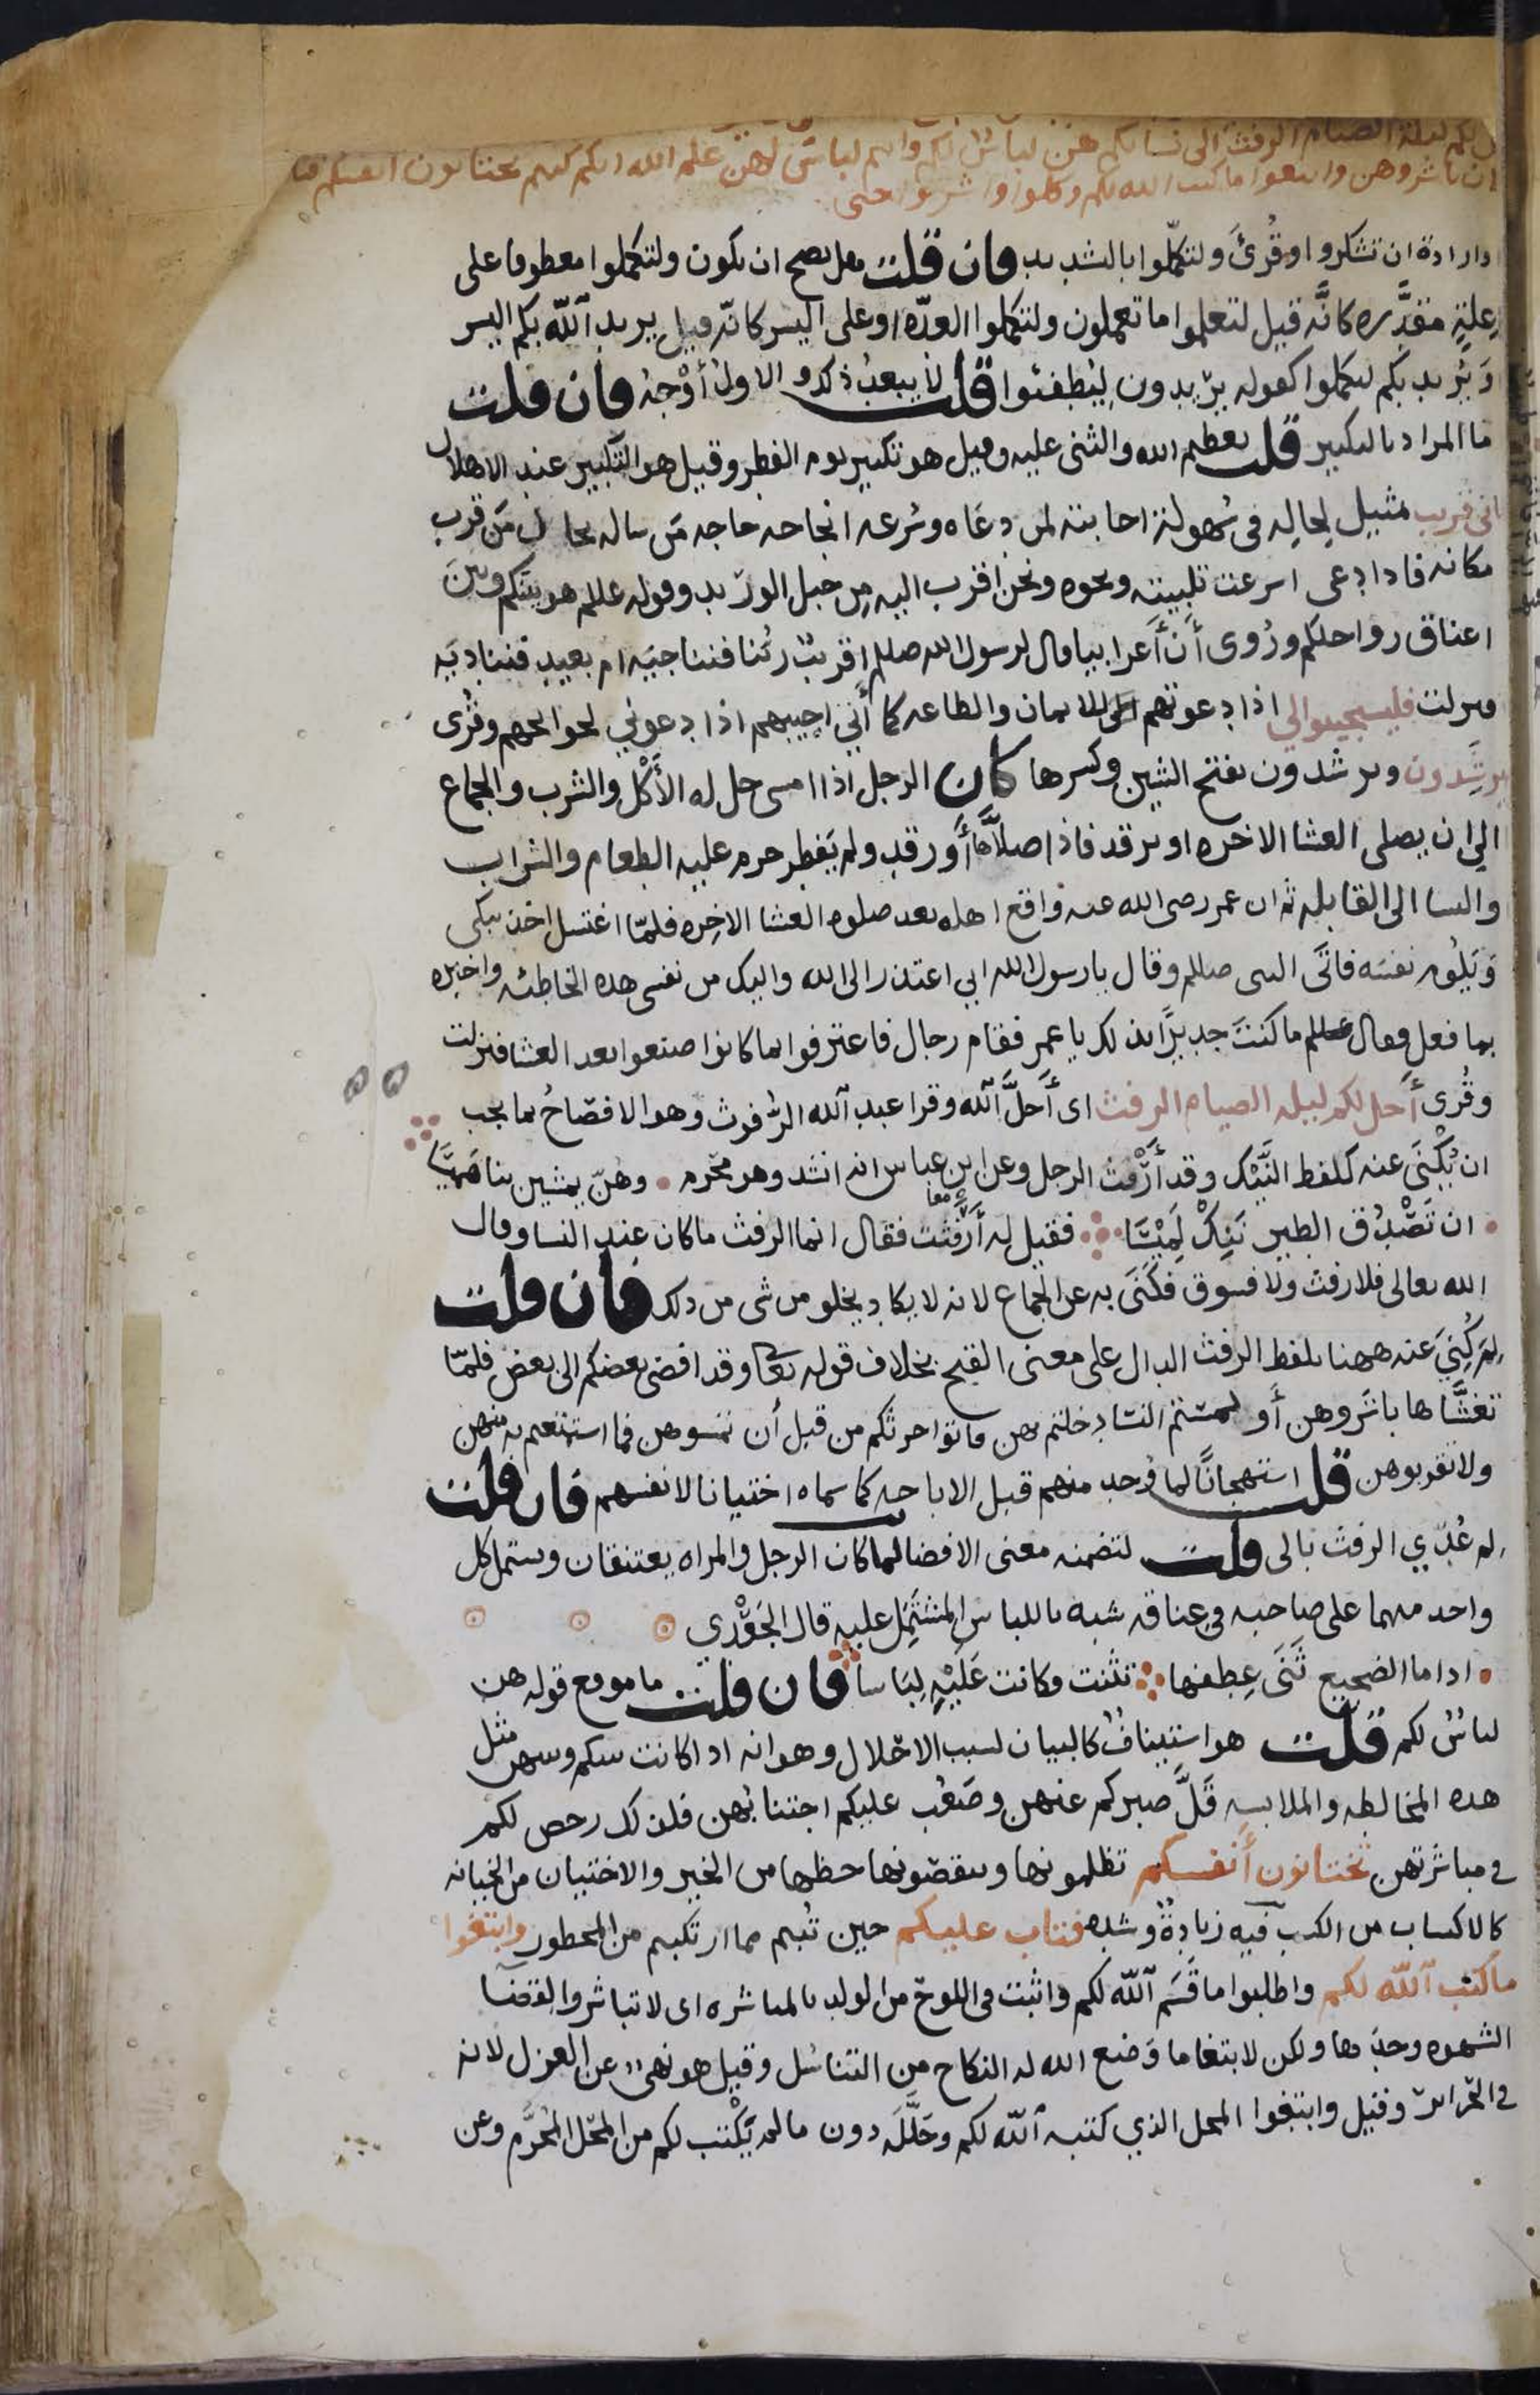 لكم ليلة الصيام الرفث الى نسائكم هن لباس لكم وانتم لباس لهن علم الله انكم كنتم تختانون انفسكم فتا
ن باشروهن وابتغوا ما كتب الله لكم وكلوا واشربوا حتى
وارادة ان تشكروا وقُرئَ ولتكمّلوا بالتشديد فان قلت هل يصح ان يكون ولتكملوا معطوفا على
علةٍ مقدَّره كانَّه قيل لتعلموا ما تعملون ولتكملوا العدّه او على اليسر كانّه قيل يريد اللّه بكم اليسر
وَيُريد بكم لتكملوا كقوله يريدون لِيُطفئوا قلت لا يبعُد ذلك والاول أوْجَهُ فان قلت
ما المراد بالتكبير قلت تعظيم الله والثنى عليه وقيل هو تكبير يوم الفطر وقيل هو التكبير عند الاهلال
انى قريب تمثيل لِحالِه فى سُهولة اجابته لمن دعَاه وسُرعه انجاحه حاجه مَن ساله بحال مَن قرب
مكانه فاذا دعى اسرعت تلبيته ونحوه ونحن اقرب اليه مِن حبل الوريد وقوله عللم هو بينكم وبين
اعناق رواحلكم ورُوى أن أعرابيا قال لرسول الله صللم اقريبٌ ربُّنا فنناجيَه ام بعيد فنناديَه
ونزلت فليستجيبوا لي اذا دعوتهم للايمان والطاعه كما أني اجيبهم اذا دعوني لحوائجهم وقُرى
يرشَدون ويرشدون بفتح الشين وكسرها كان الرجل اذا امسى حل له الأكْل والشرب والجماع
الى ان يصلى العشا الاخره او يرقد فاذا صلَّاها أو رقد ولم يَفطِر حرم عليه الطعام والشراب
والنسا الى القابله ثم ان عمر رضى الله عنه واقع اهله بعد صلوه العشا الاخِره فلمّا اغتسل اخذ يبكى
وَيَلُوم نفسَه فاتَى النبى صللم وقال يا رسول الله انى اعتذر الى الله واليك من نفسى هذه الخاطئه واخبره
بما فعل فقال عللم ما كنتَ جديرًا بذلك يا عمر فقام رجال فاعترفوا بما كانوا صنعوا بعد العشا فنزلت
وقُرى أَحل لكم ليله الصيام الرفث اى أَحلَّ اللّه وقرا عبد الله الرُّفوث وهو الافصَاحُ بما يجب
ان يُكْنَى عنه كلفظ النَّيْك وقد أرْفث الرجل وعن ابن عباس انه انشد وهو محْرِم وهُنّ يمشين بنا هَميسَا
ان تَصْدُق الطير نَنِكْ لَمِيْسَا فقيل له أَرَفَثْتَ معا فقال انما الرفث ما كان عند النسا وقال
الله تعالى فلا رفث ولا فسوق فكَنَى به عن الجماع لانه لا يكاد يخلو من شى من ذلك فان قلت
لِمَ كُنِيَ عنه ههنا بلفظ الرفث الدال على معنى القبح بخلاف قوله تعا وقد افضى بعضكم الى بعض فلمّا
تغشَّاها باشروهن أو لمستم النسا دخلتم بهن فاتوا حرثكم من قبل أن تمسوهن فما استمتعتم به منهن
ولا تقربوهن قلت استهجانًا لما وُجد منهم قبل الاباحه كما سماه اختيانا لانفسهم فان قلت
لم عُدّي الرفث بالى قلت لتضمنه معنى الافضا لما كان الرجل والمراه يعتنقان ويشتمل كل
واحد منهما على صاحبه فى عِناقه شبه باللباس المشتَمِل عليه قال الجَعْدي
اذا ما الضجيع ثَنَى عِطفها تثنت فكانت عَليْهِ لِبَاسا فان قلت ما موقع قوله هن
لباسٌ لكم قلت هو استيِنافٌ كالبيان لسبب الاحلال وهو انه اذا كانت بينكم وبينهن مثل
هذه المخالطه والملابسه قَلَّ صبركم عنهن وصَعُب عليكم اجتنابُهن فلذلك رخص لكم
فى مباشرتهن تختانون أنفسكم تظلمونها وتنقصُونها حظها من الخير والاختيان من الخيانه
كالاكتساب من الكسب فيه زيادةٌ وشده فتاب عليكم حين تُبتم مما ارتكبتم من المحظور وابتغوا
ما كتب اللّه لكم واطلبوا ما قَسَم اللّه لكم واثبت فى اللوح من الولد بالمباشره اى لا تباشروا لقضا
الشهوه وحدَها ولكن لابتغا ما وَضع الله له النكاح من التناسُل وقيل هو نهىٌ عن العزل لانه
فى الحَراير وقيل وابتغوا المحل الذي كتبه اللّه لكم وحَلَّلَه دون ما لم يَكْتب لكم من المحَل المُحَرَّم وعن